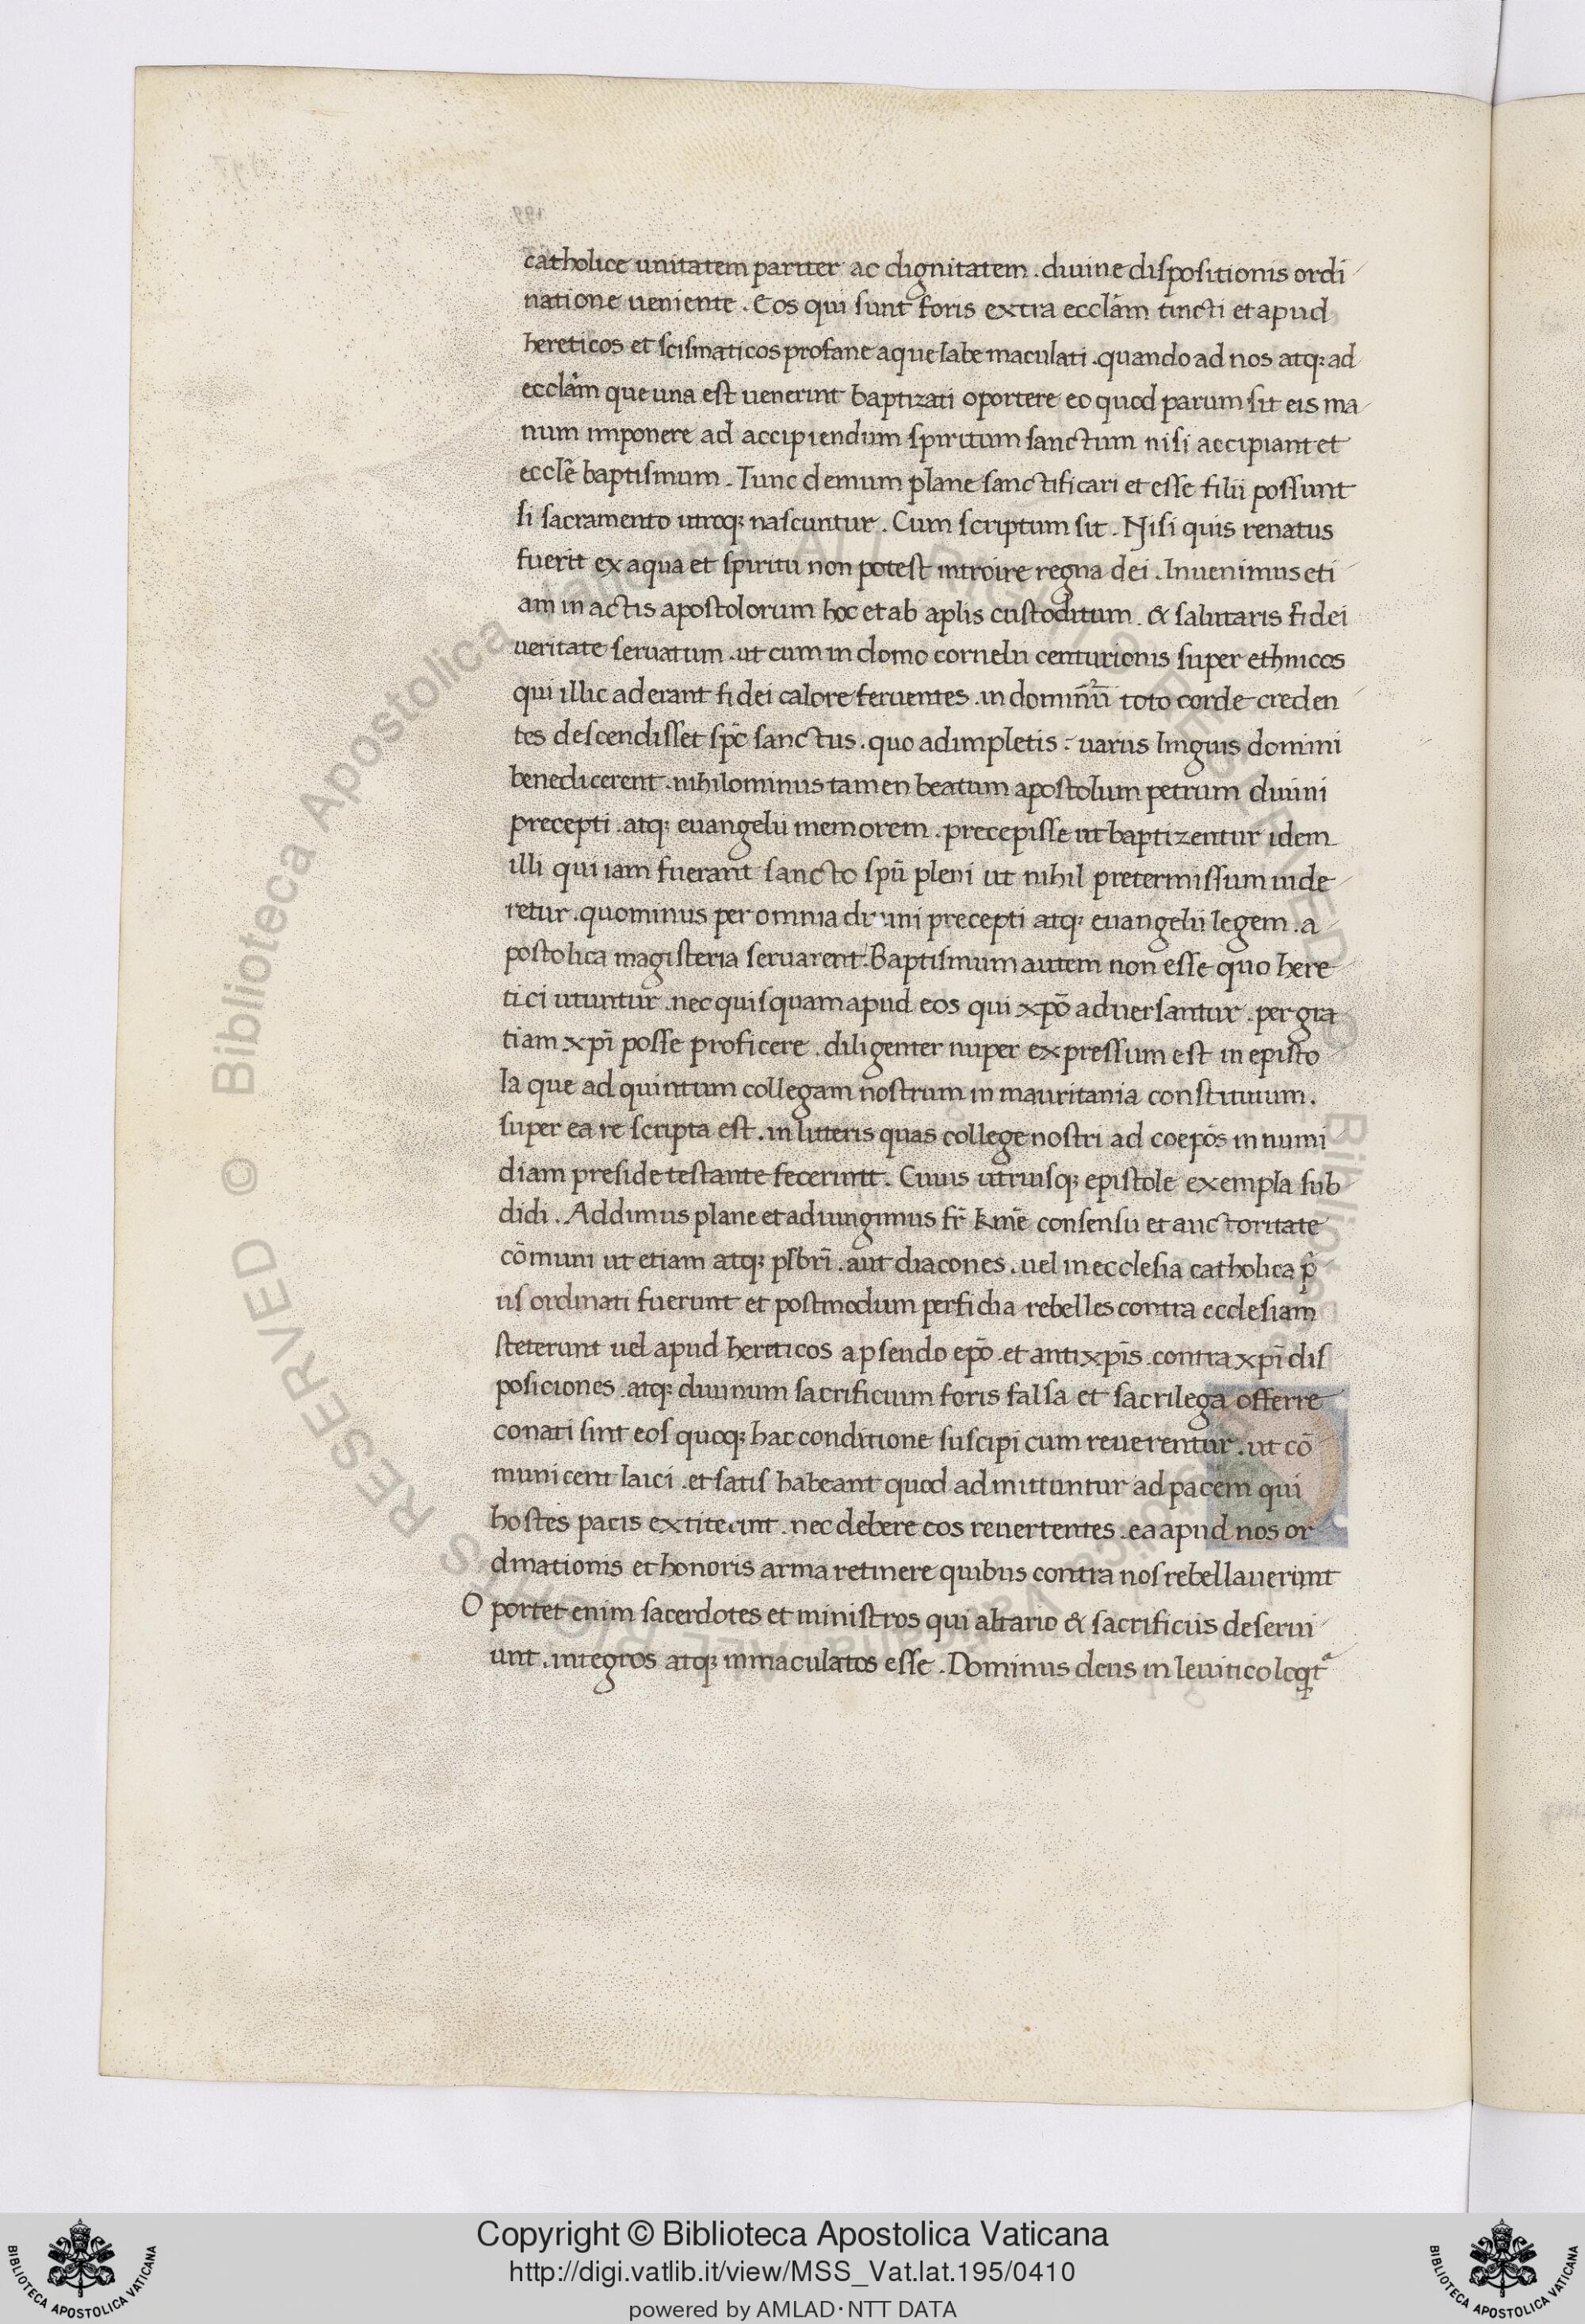 catholice unitatem pariter ac dignitatem . diuine dispositionis ordi
natione ueniente . Eos qui sunt foris extra ecclām tincti et apud
hereticos et scismaticos profane aque labe maculati . quando ad nos atq; ad
ecclām que una est uenerint baptizati oportere eo quod parum sit eis ma
num imponere ad accipiendum spiritum sanctum nisi accipiant et
ecclē baptismum . Tunc demum plane sanctificari et esse filii possunt
si sacramento utroq; nascuntur . Cum scriptum sit . Nisi quis renatus
fuerit ex aqua et spiritu non potest introire regna dei . Inuenimus eti
am in actis apostolorum hoc et ab aplis custoditum . & salutaris fidei
ueritate seruatum . ut cum in domo cornelii centurionis super ethnicos
qui illic aderant fidei calore feruentes . in toto corde creden
tes descendisset spc̄ sanctus . quo adimpletis . uariis linguis domini
benedicerent . nihilominus tamen beatum apostolum petrum diuini
precepti . atq; euangelii memorem . precepisse ut baptizentur idem
illi qui iam fuerant sancto spū pleni ut nihil pretermissum uide
retur . quominus per omnia diuini precepti atq; euangelii legem . a
postolica magisteria seruarent . Baptismum autem non esse quo here
tici utuntur . nec quisquam apud eos qui xpō aduersantur . per gra
tiam xpī posse proficere . diligenter nuper expressum est in episto
la que ad quintum collegam nostrum in mauritania constitutum .
super ea re scripta est . in litteris quas college nostri ad coepōs in numi
diam preside testante fecerunt . Cuius utriusq; epistole exempla sub
didi . Addimus plane et adiungimus fr̄ kme̅ consensu et auctoritate
cōmuni ut etiam atq; psbrī . aut diacones . uel in ecclesia catholica p̄
us ordinati fuerunt et postmodum perfidia rebelles contra ecclesiam
steterunt uel apud hereticos a pseudo epō . et antixpīs . contra xpī dis
posiciones . atq; diuinum sacrificium foris falsa et sacrilega offerre
conati sint eos quoq; hac conditione suscipi cum reuerentur . ut cō
municent laici . et satis habeant quod admittuntur ad pacem qui
hostes pacis extiterint . nec debere eos reuertentes . ea apud nos or
dinationis et honoris arma retinere quibus contra nos rebellauerint
Oportet enim sacerdotes et ministros qui altario & sacrificiis deserui
unt . integros atq; inmaculatos esse . Dominus deus in leuitico
Copyright © Biblioteca Apostolica Vaticana
http://digi.vatlib.it/view/MSS_Vat.lat.195/0410
powered by AMLAD·NTT DATA
BIBLIOTECA APOSTOLICA VATICANA
BIBLIOTECA APOSTOLICA VATICANA